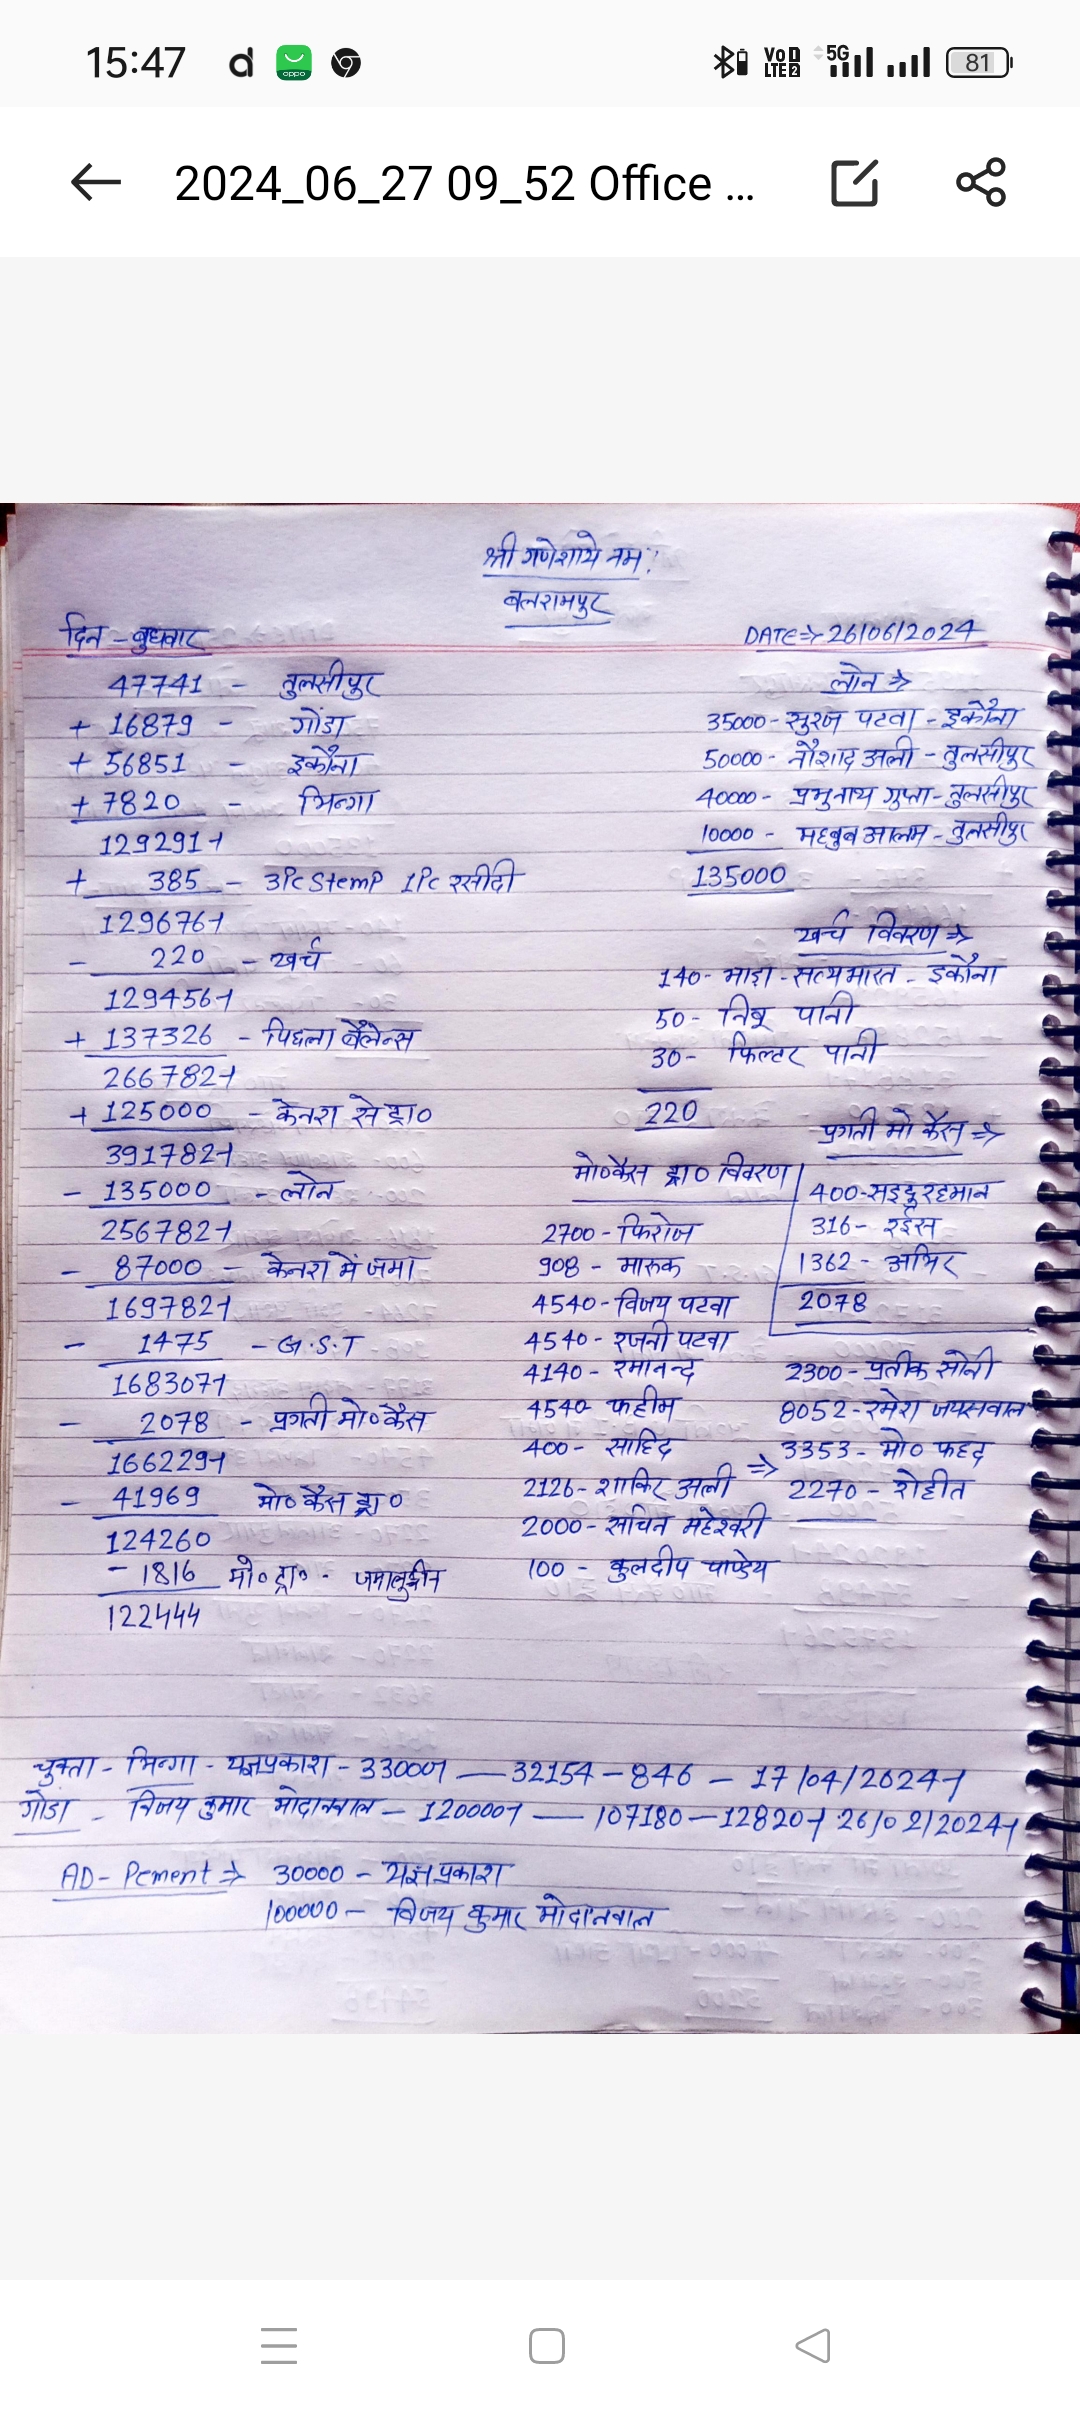 15:47
VoLTE 5G 81
2024_06_27 09_52 Office ...
श्री गणेशाये नम:
बलरामपुर
दिन - बुधवार
DATE⇒26/06/2024
47741 - तुलसीपुर
+ 16879 - गोंडा
+ 56851 - इकौना
+ 7820 - भिन्गा
129291/-
+ 385 - 3Pc Stemp 1Pc रसीदी
129676/-
- 220 - खर्च
129456/-
+ 137326 - पिछला बैलेन्स
266782/-
+ 125000 - केनरा से ड्रा०
391782/-
- 135000 - लोन
256782/-
- 87000 - केनरा में जमा
169782/-
- 1475 - G.S.T
168307/-
- 2078 - प्रगती मो० कैस
166229/-
- 41969 मो० कैस ड्रा०
124260
- 1816 मो० ड्रा० - जमालुद्दीन
122444
लोन ⇒
35000 - सुरज पटवा - इकौना
50000 - नौशाद अली - तुलसीपुर
40000 - प्रभुनाथ गुप्ता - तुलसीपुर
10000 - महबुब आलम - तुलसीपुर
135000
खर्च विवरण ⇒
140 - भाड़ा - सत्यभारत - इकौना
50 - निबू पानी
30 - फिल्टर पानी
220
प्रगती मो कैस ⇒
400 - सइदुरहमान
316 - रईस
1362 - अमिर
2078
मो० कैस ड्रा० विवरण
2700 - फिरोज
908 - मारूक
4540 - विजय पटवा
4540 - रजनी पटवा
4140 - रमानन्द
4540 - फहीम
400 - साहिद
2126 - शाकिर अली ⇒
2000 - सचिन महेश्वरी
100 - कुलदीप पाण्डेय
2300 - प्रतीक सोनी
8052 - रमेश जयसवाल
3353 - मो० फहद
2270 - रोहीत
चुक्ता - भिन्गा - यज्ञप्रकाश - 33000/- — 32154 - 846 - 17/04/2024/-
गोंडा - विजय कुमार मोदानवाल - 120000/- — 107180 - 12820/- 26/02/2024/-
AD - Pement ⇒ 30000 - यज्ञ प्रकाश
100000 - विजय कुमार मोदानवाल